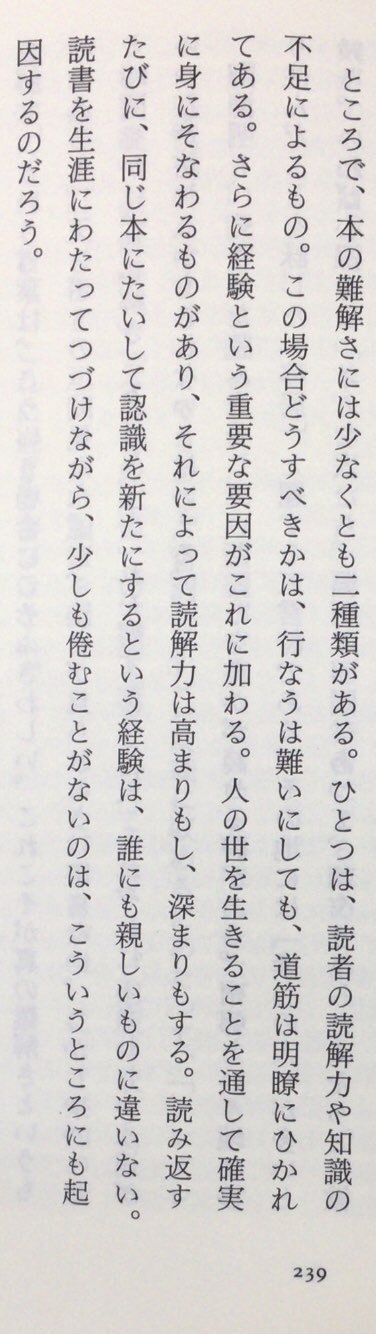 ところで、本の難解さには少なくとも二種類がある。ひとつは、読者の読解力や知識の
不足によるもの。この場合どうすべきかは、行なうは難いにしても、道筋は明瞭にひかれ
てある。さらに経験という重要な要因がこれに加わる。人の世を生きることを通して確実
に身にそなわるものがあり、それによって読解力は高まりもし、深まりもする。読み返す
たびに、同じ本にたいして認識を新たにするという経験は、誰にも親しいものに違いない。
読書を生涯にわたってつづけながら、少しも倦むことがないのは、こういうところにも起
因するのだろう。
239